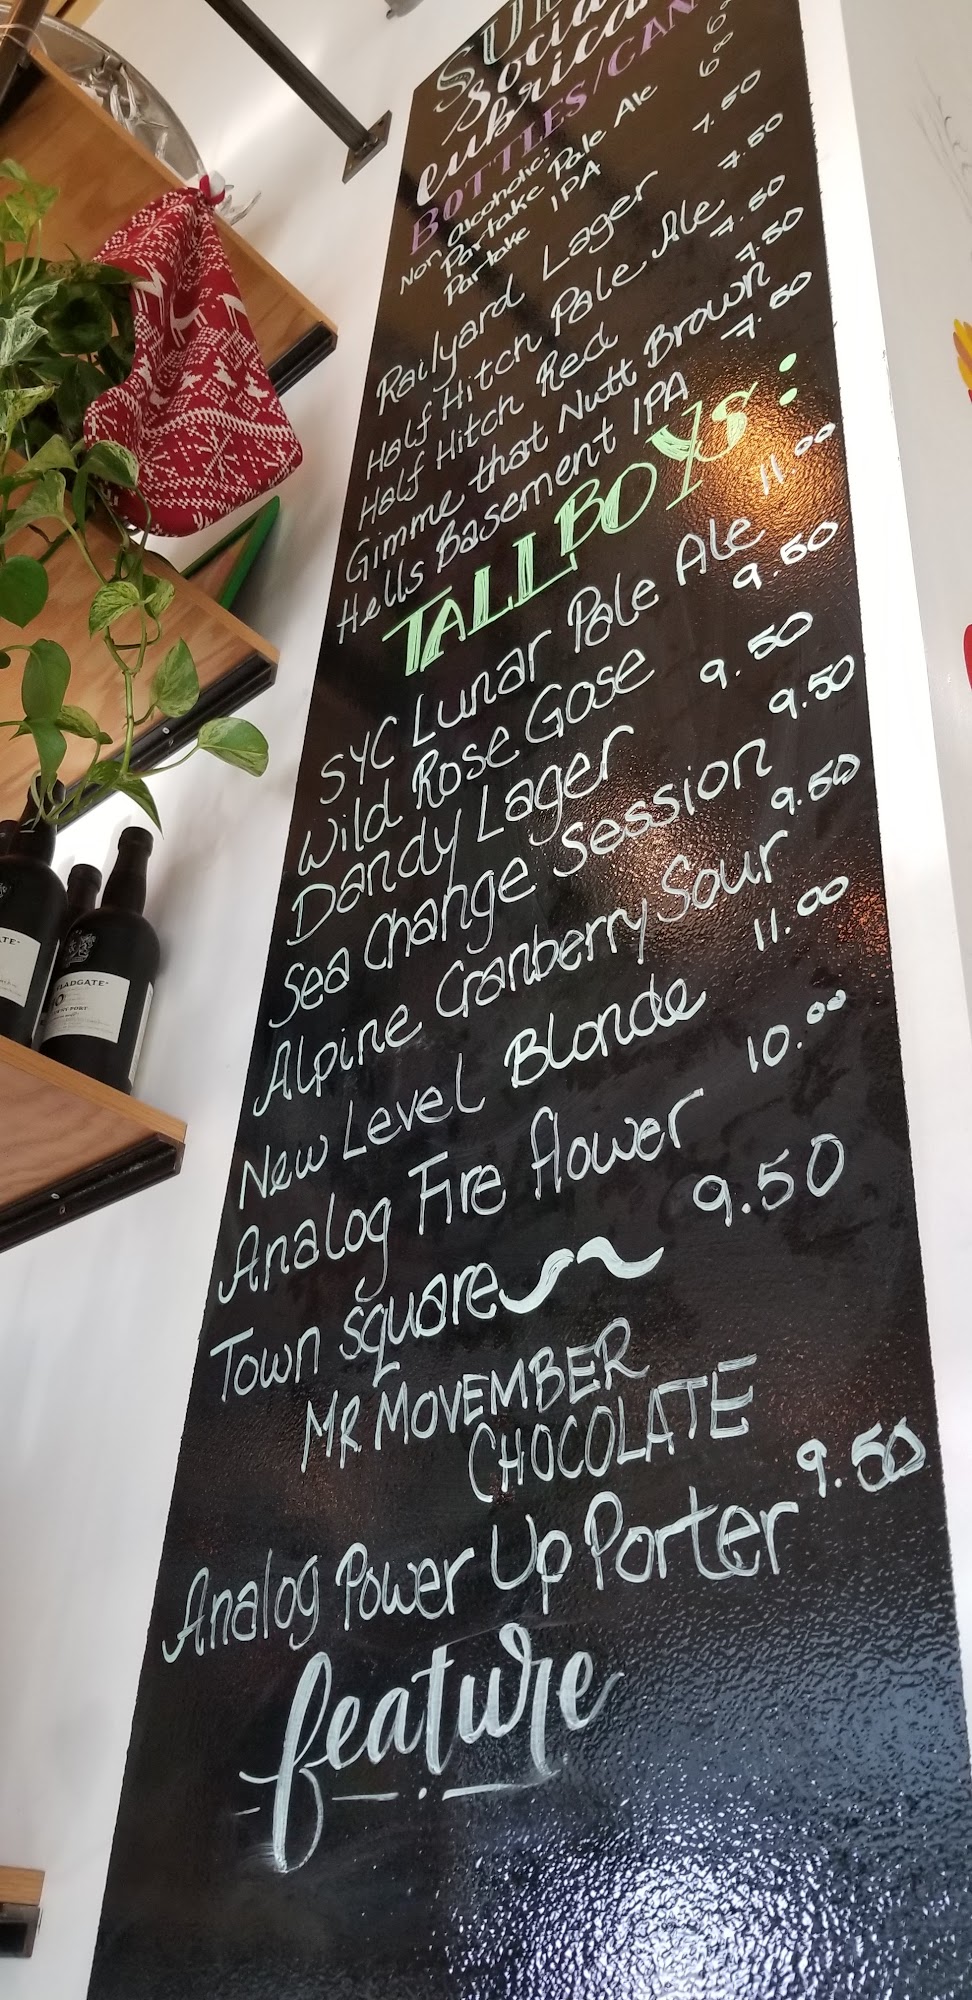 Social
BOTTLES/CAN
Non alcoholic:
Partake Pale Ale 6
Partake IPA 6
Railyard Lager 7.50
Half Hitch Pale Ale 7.50
Half Hitch Red 7.50
Gimme that Nutt Brown 7.50
Hells Basement IPA 7.50
TALLBOYS:
SYC Lunar Pale Ale 11.00
Wild Rose Gose 9.50
Dandy Lager 9.50
Sea Change Session 9.50
Alpine Cranberry Sour 9.50
New Level Blonde 11.00
Analog Fire flower 10.00
Town Square 9.50
MR MOVEMBER
CHOCOLATE
Analog Power Up Porter 9.50
feature
LADGATE
10